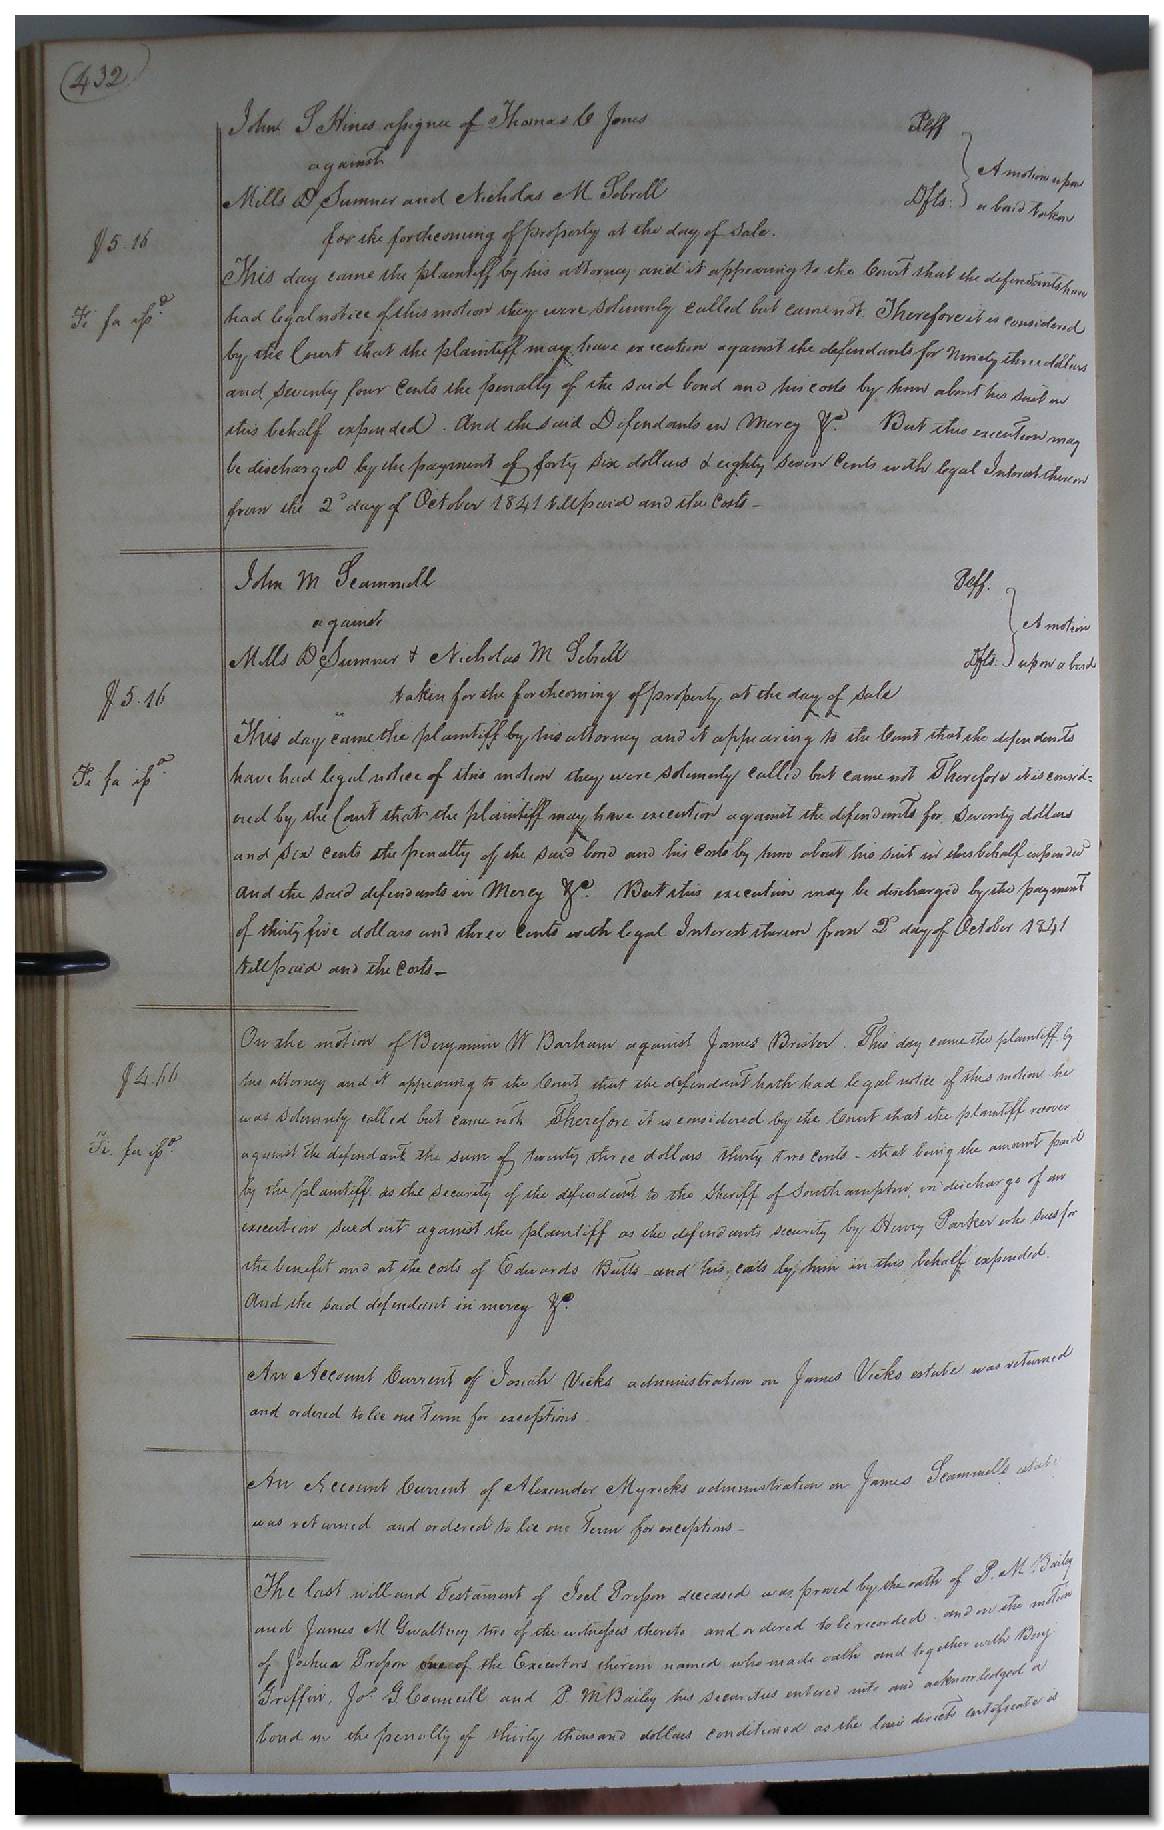 (432)
John S Hines assignee of Thomas C Jones Plff
against
A motion upon
Mills D Sumner and Nicholas M Sebrell Dfts. a bond taken
for the forthcoming of property at the day of sale.
$5.16
This day came the plaintiff by his attorney and it appearing to the Court that the defendants have
Fi fa issd.
had legal notice of this motion they were solemnly called but came not. Therefore it is considered
by the Court that the plaintiff may have execution against the defendants for Ninety three dollars
and seventy four Cents the penalty of the said bond and his costs by him about his suit in
this behalf expended. And the said Defendants in Mercy &c. But this execution may
be discharged by the payment of forty six dollars & eighty seven Cents with legal Interest thereon
from the 2d day of October 1841 till paid and the Costs –
John M Scammell Plff.
against A motion
Mills D Sumner & Nicholas M Sebrell Dfts. upon a bond
taken for the forthcoming of property at the day of sale
$5.16
This day came the plaintiff by his attorney and it appearing to the Court that the defendants
Fi fa issd.
have had legal notice of this motion they were solemnly called but came not Therefore it is consid-
ered by the Court that the plaintiff may have execution against the defendants for Seventy dollars
and Six cents the penalty of the said bond and his Costs by him about his suit in this behalf expended
and the said defendants in Mercy &c. But this execution may be discharged by the payment
of thirty five dollars and three Cents with legal Interest thereon from 2d day of October 1841
till paid and the Costs –
On the motion of Benjamin W Barham against James Brister. This day came the plaintiff by
$4.66
his attorney and it appearing to the Court that the defendant hath had legal notice of this motion he
was solemnly called but came not Therefore it is considered by the Court that the plaintiff recover
Fi. fa issd.
against the defendant the sum of twenty three dollars thirty two cents – that being the amount paid
by the plaintiff as the security of the defendant to the Sheriff of Southampton in discharge of an
execution sued out against the plaintiff as the defendants security by Henry Parker who sues for
the benefit and at the costs of Edwards Butts and his costs by him in this behalf expended.
And the said defendant in mercy &c.
An Account Current of Josiah Vicks administration on James Vicks estate was returned
and ordered to lie one Term for exceptions.
An Account Current of Alexander Myricks administration on James Scammells estate
was returned and ordered to lie one Term for exceptions –
The last will and Testament of Joel Presson deceased was proved by the oath of P. M. Bailey
and James M Gwaltney two of the witnesses thereto and ordered to be recorded. and on the motion
of Joshua Presson one of the Executors therein named who made oath and together with Benj
Griffin, Jos. G. Councill and P M Bailey his securities entered into and acknowledged a
bond in the penalty of thirty thousand dollars conditioned as the law directs certificate is